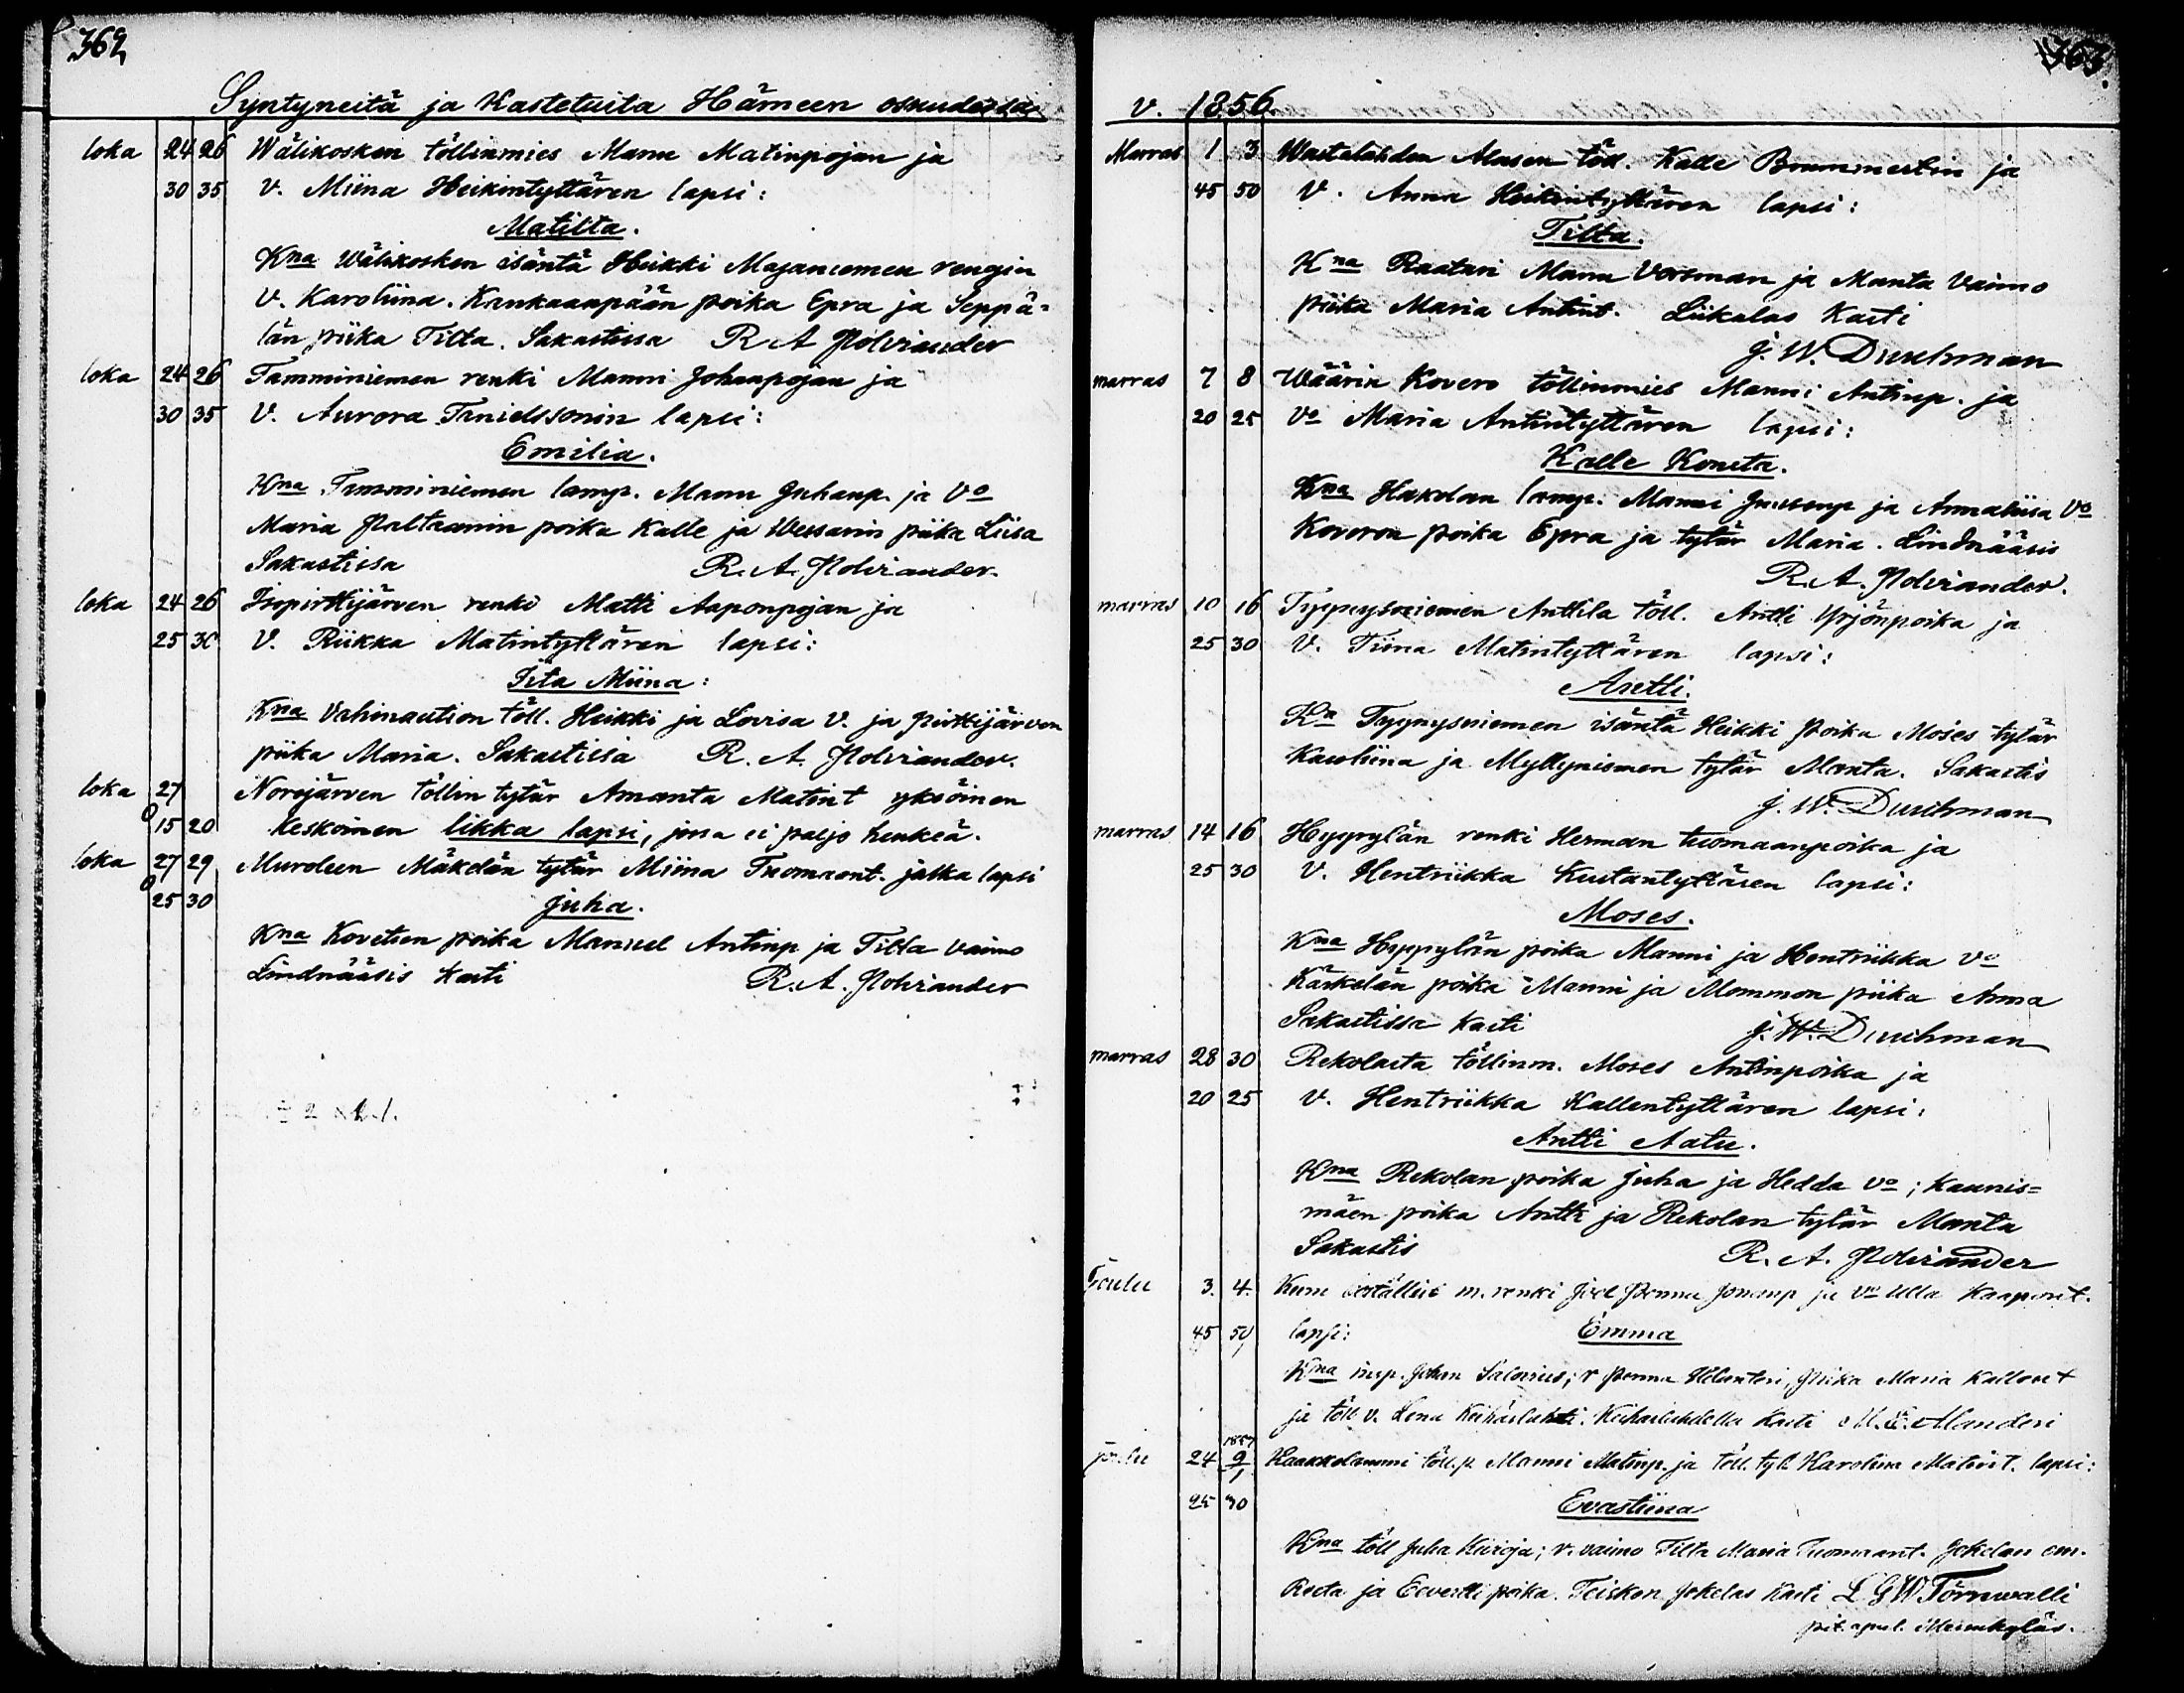 362
Syntyneitä ja Kastetuita Hämeen osuudessa
loka 24 26 Wälikosken töllinmies Manu Matinpojan ja
30 35 V. Miina Heikintyttären lapsi:
Matilta.
Kna Wälikosken isäntä Heikki Majaniemen rengin
V. Karoliina. Kankaanpään poika Epra ja Seppä=
län piika Tilta. Sakastissa R A Holvrander
loka 24 26 Tamminiemen renki Manni Johanpojan ja
30 35 V. Aurora Tanielssonin lapsi:
Emilia.
Kna Tamminiemen lamp. Manu Juhanp. ja Vo
Maria Paltamin poika Kalle ja Wessarin piika Liisa
Sakastissa R. A. Holvrander.
loka 24 26 Isopirttijärven renki Matti Aaponpojan ja
25 30 V. Riikka Matintyttären lapsi:
Iita Miina:
Kna Vahinaution töll. Heikki ja Lovisa V. ja pirttijärven
piika Maria. Sakastissa R. A. Holvrander.
loka 27 Norojärven töllin tytär Amanta Matint yksöinen
0 15 20 Keskoinen likka lapsi, jossa ei paljo henkeä.
loka 27 29 Muroleen Mäkelän tytär Miina Tuomaant. jalka lapsi
0 25 30 Juha.
Kna Kovetsen poika Manuel Antinp ja Tilta vaimo
Lindnääsis Kasti R. A. Holvrander
363.
V. 1856.
Marras 1 3 Wastalahden Alasen töll. Kalle Brummertin ja
45 50 V. Anna Heikintyttären lapsi:
Tilta.
Kna Raatari Manu Vorsman ja Manta Vaimo
piika Maria Antint. Liikalas Kasti
J. W. Durchman
marras 7 8 Wäärin Kovero töllinmies Manni Antinp. ja
20 25 Vo Maria Antintyttären lapsi:
Kalle Konsta.
Kna Hakolan lamp. Manni Juusenp ja Annaliisa Vo
Koveron poika Epra ja tytär Maria. Lindnääsis
R. A. Holvrander.
marras 10 16 Typpysniemen Anttila töll. Antti Yrjönpoika ja
25 30 V. Tiina Matintyttären lapsi:
Antti.
Kn Typpysniemen isäntä Heikki poika Moses tytär
Karoliina ja Myllyniemen tytär Manta. Sakastis
J. W. Durchman
marras 14 16 Hyppylän renki Herman tuomaanpoika ja
25 30 V. Hentriikka Kustantyttären lapsi:
Moses.
Kna Hyppylän poika Manni ja Hentriikka Vo
Kärkelän poika Manni ja Mommon piika Anna
Sakastissa Kasti J. W. Durchman
marras 28 30 Rekolasta töllinm. Moses Antinpoika ja
20 25 V. Hentriikka Kallentyttären lapsi:
Antti Aatu.
Kna Rekolan poika Juha ja Hedda vo; Kaunis=
mäen poika Antti ja Rekolan tytär Manta
Sakastis R. A. Holvrander
Joulu 3. 4. m. renki ja vo Ulla Kaaporint.
45 50 lapsi: Emma
Kna insp. Johan Salonius; piika Maria Kallent
ja töll v. Lena Keihäslahti. Keihäslahdella Kasti Manderi
joulu 24 1857 9/1 Haakkolammi töll.p. Manni Matinp. ja töll. tyt. Karoliina Matint. lapsi:
25 30 Evastiina
Kna töll Juha Kiiroja; v. vaimo Tilta Maria Tuomaant. Jokelan em.
Roeta ja Eevertti poika. Teiskon Jokelas Kasti L G W Törnwalli
pit. apul. Messukyläs.